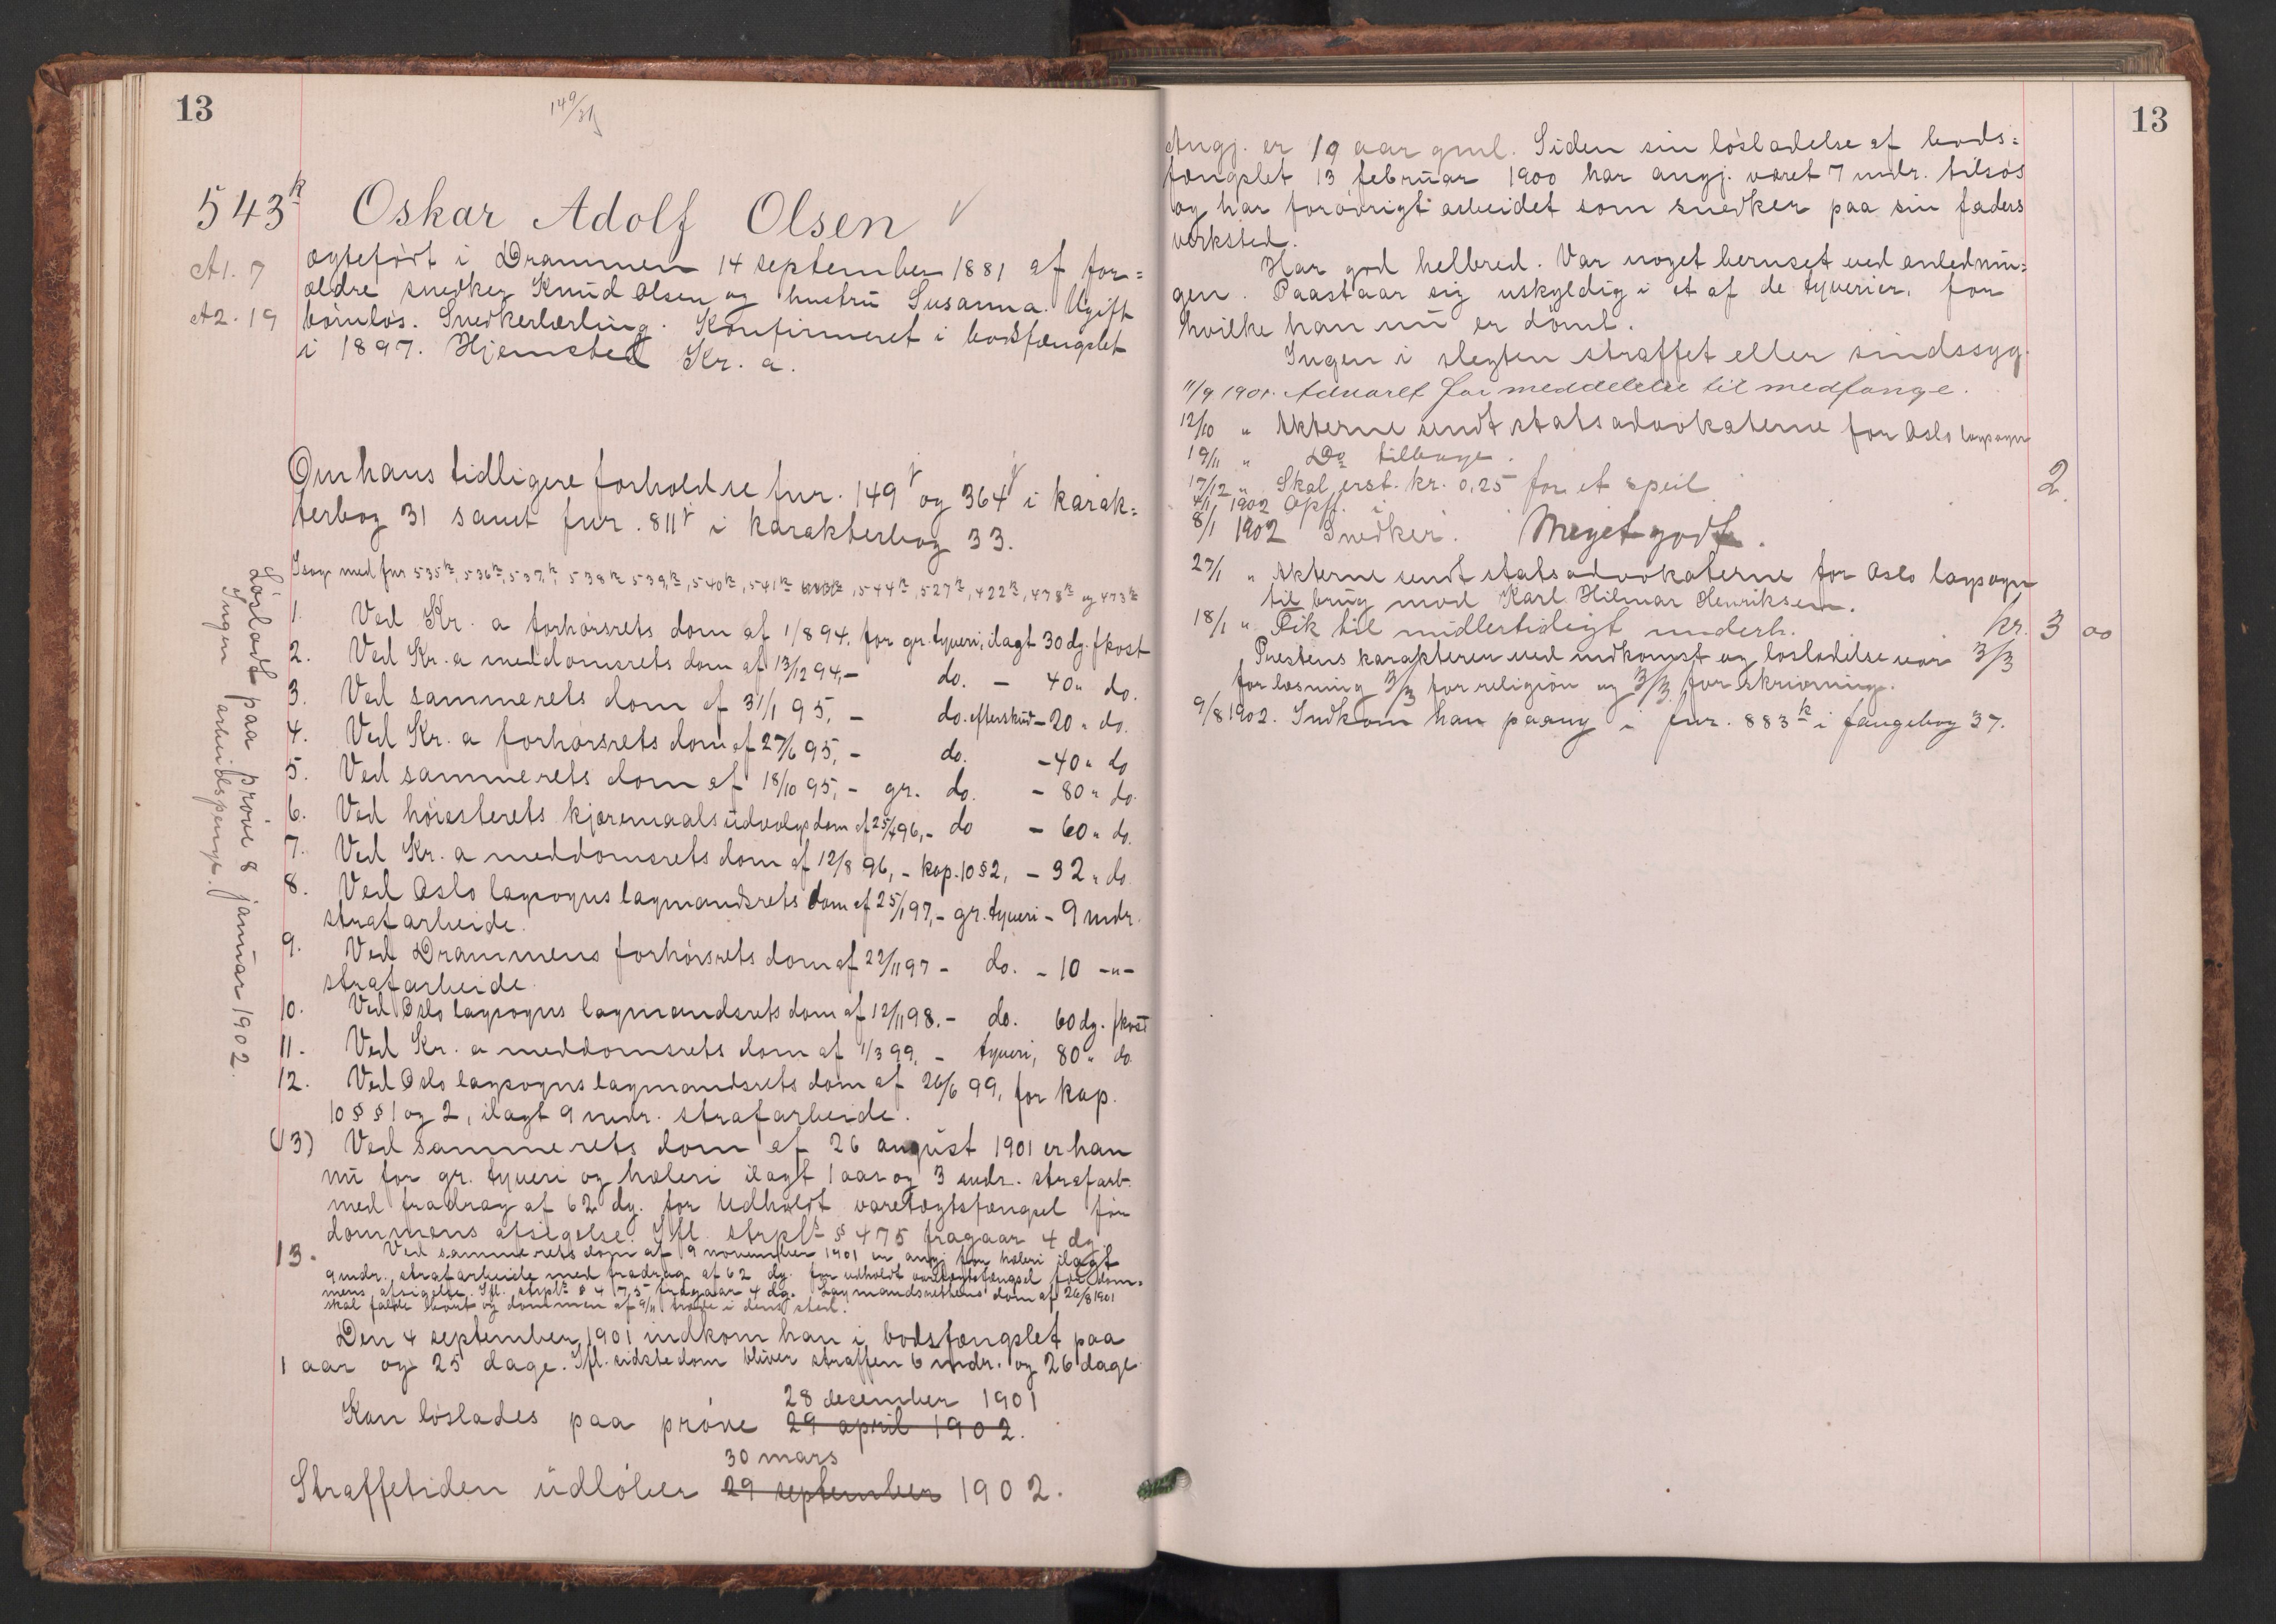 13
149/31
543k Oskar Adolf Olsen
A1. 7
A2. 19
ægtefødt i Drammen 14 september 1881 af for=
ældre snedker Knud Olsen og hustru Susanna. Ugift
børnløs. Snedkerlærling. Konfirmeret i bodsfængslet
i 1897. Hjemsted Kr. a.
Om hans tidligere forhold se fnr. 149 og 364 i karak=
terbog 31 samt fnr. 811 i karakterbog 33.
I sag med fnr 535k, 536k, 537k, 538k 539k, 540k, 541k, 544k, 527k, 422k, 478k og 473k
1. Ved Kr. a forhørsrets dom af 1/8 94. for gr. tyveri, ilagt 30 dg. fkost
2. Ved Kr. a meddomsrets dom af 13/12 94, - do. - 40 " do.
3. Ved samme rets dom af 31/1 95, - do. efterskud - 20 " do.
4. Ved Kr. a forhørsrets dom af 27/6 95, - do. - 40 " do
5. Ved samme rets dom af 18/10 95, - gr. do. - 80 " do.
6. Ved høiesterets kjæremaalsudvalgs dom af 25/4 96, - do - 60 " do.
7. Ved Kr. a meddomsrets dom af 12/8 96, - kap. 10 § 2, - 92 " do
8. Ved Oslo lagsogns lagmandsrets dom af 25/1 97, - gr. tyveri - 9 mdr.
strafarbeide.
9. Ved Drammens forhørsrets dom af 22/11 97 - do. - 10 -"-
strafarbeide
10. Ved Oslo lagsogns lagmandsrets dom af 12/11 98. - do. 60 dg. fkost
11. Ved Kr. a meddomsrets dom af 1/3 99, - tyveri, 80 " do.
12. Ved Oslo lagsogns lagmandsrets dom af 26/6 99, for kap.
10 §§ 1 og 2, ilagt 9 mdr. strafarbeide.
(13) Ved samme rets dom af 26 august 1901 er han
nu for gr. tyveri og hæleri ilagt 1 aar og 3 mdr. strafarb.
med fradrag af 62 dg. for udholdt varetægtsfængsel før
dommens afsigelse. Ifl. strpl § 475 fragaar 4 dg.
13. Ved samme rets dom af 9 november 1901 er angj. for hæleri ilagt
9 mdr. strafarbeide med fradrag af 62 dg. for udholdt varetægtsfængsel før dom=
mens afsigelse. Ifl. strpl § 475 fragaar 4 dg. Lagmandsrettens dom af 26/8 1901
skal falde bort og dommen af 9/11 træde i dens sted.
Den 4 september 1901 indkom han i bodsfængslet paa
1 aar og 25 dage. Ifl. sidste dom bliver straffen 6 mdr. og 26 dage
28 desember 1901
Kan løslades paa prøve 29 april 1902.
30 mars
Straffetiden udløber 29 september 1902.
Løsladt paa prøve 8 januar 1902.
Ingen arbeidspenge.
13
Angj. er 19 aar gml. Siden sin løsladelse af bods=
fængslet 13 februar 1900 har angj. været 7 mdr. tilsøs
og har forøvrigt arbeidet som snedker paa sin faders
verksted.
Har god helbred. Var noget beruset ved anlednin=
gen. Paastaar sig uskyldig i et af de tyverier, for
hvilke han nu er dømt.
Ingen i slegten straffet eller sindssyg.
11/9 1901. Advaret for meddelelse til medfange.
12/10 " Akterne sendt statsadvokaterne for Oslo lagsogn
19/11 " Do tilbage.
17/12 " Skal erst. kr. 0,25 for et speil.
4/1 1902 Opfl. i 2.
8/1 1902 Snedker. Meget godt.
27/1 " Akterne sendt statsadvokaterne for Oslo lagsogn
til brug mod Karl Hilmar Henriksen.
18/1 " Fik til midlertidigt underh. kr. 3 00
Prestens karakterer ved indkomst og løsladelse var 3/3
for læsning 3/3 for religion og 3/3 for skrivning.
9/8 1902. Indkom han paany i fnr. 883k i fangebog 37.